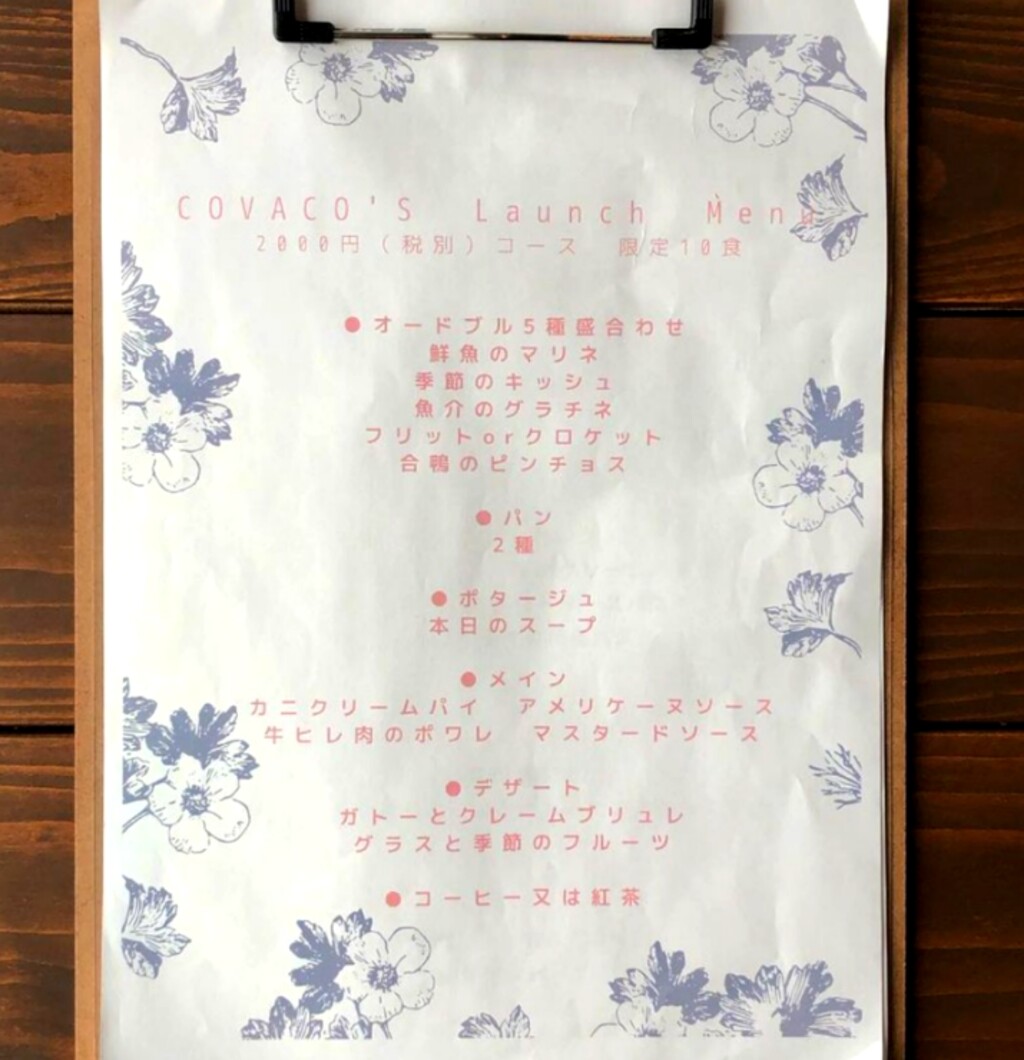 COVACO'S Launch Menu
2000円(税別)コース 限定10食
●オードブル5種盛合わせ
鮮魚のマリネ
季節のキッシュ
魚介のグラチネ
フリットorクロケット
合鴨のピンチョス
●パン
2種
●ポタージュ
本日のスープ
●メイン
カニクリームパイ アメリケーヌソース
牛ヒレ肉のポワレ マスタードソース
●デザート
ガトーとクレームブリュレ
グラスと季節のフルーツ
●コーヒー又は紅茶